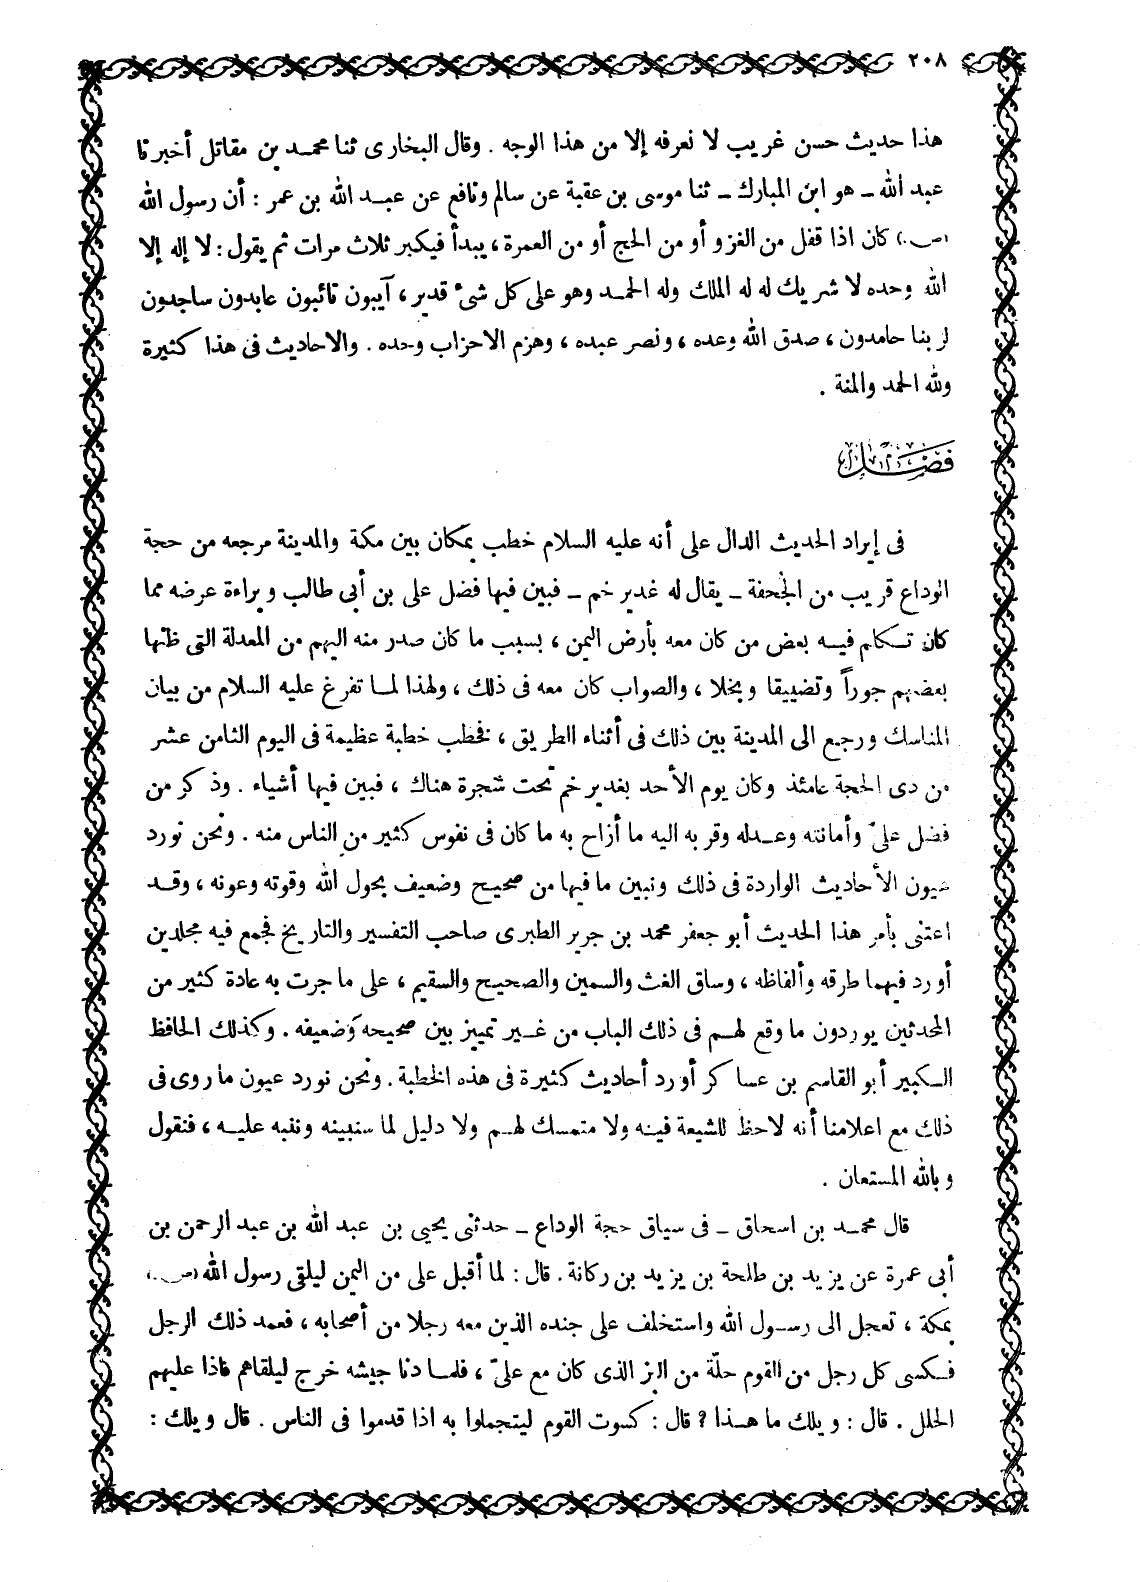 ٢٠٨
هذا حديث حسن غريب لا نعرفه إلا من هذا الوجه . وقال البخارى ثنا محمد بن مقاتل أخبرنا
عبد الله ـ هو ابن المبارك ـ ثنا موسى بن عقبة عن سالم ونافع عن عبد الله بن عمر : أن رسول الله
(ص.) كان اذا قفل من الغزو أو من الحج أو من العمرة ، يبدأ فيكبر ثلاث مرات ثم يقول : لا إله إلا
الله وحده لا شريك له له الملك وله الحمد وهو على كل شىء قدير ، آيبون تائبون عابدون ساجدون
لربنا حامدون ، صدق الله وعده ، ونصر عبده ، وهزم الاحزاب وحده . والاحاديث فى هذا كثيرة
ولله الحمد والمنة .
فصل
فى إيراد الحديث الدال على أنه عليه السلام خطب بمكان بين مكة والمدينة مرجعه من حجة
الوداع قريب من الجحفة ـ يقال له غدير خم ـ فبين فيها فضل على بن أبى طالب وبراءة عرضه مما
كان تكلم فيه بعض من كان معه بأرض اليمن ، بسبب ما كان صدر منه اليهم من المعدلة التى ظنها
بعضهم جوراً وتضييقا وبخلا ، والصواب كان معه فى ذلك ، ولهذا لما تفرغ عليه السلام من بيان
المناسك ورجع الى المدينة بين ذلك فى أثناء الطريق ، فخطب خطبة عظيمة فى اليوم الثامن عشر
من ذى الحجة عامئذ وكان يوم الأحد بغدير خم تحت شجرة هناك ، فبين فيها أشياء . وذكر من
فضل علىّ وأمانته وعدله وقربه اليه ما أزاح به ما كان فى نفوس كثير من الناس منه . ونحن نورد
عيون الأحاديث الواردة فى ذلك ونبين ما فيها من صحيح وضعيف بحول الله وقوته وعونه ، وقد
اعتنى بأمر هذا الحديث أبو جعفر محمد بن جرير الطبرى صاحب التفسير والتاريخ فجمع فيه مجلدين
أورد فيهما طرقه وألفاظه ، وساق الغث والسمين والصحيح والسقيم ، على ما جرت به عادة كثير من
المحدثين يوردون ما وقع لهم فى ذلك الباب من غير تمييز بين صحيحه وضعيفه . وكذلك الحافظ
الكبير أبو القاسم بن عساكر أورد أحاديث كثيرة فى هذه الخطبة . ونحن نورد عيون ما روى فى
ذلك مع اعلامنا أنه لاحظ للشيعة فيه ولا متمسك لهم ولا دليل لما سنبينه وننبه عليه ، فنقول
وبالله المستعان .
قال محمد بن اسحاق ـ فى سياق حجة الوداع ـ حدثنى يحيى بن عبد الله بن عبد الرحمن بن
أبى عمرة عن يزيد بن طلحة بن يزيد بن ركانة . قال : لما أقبل على من اليمن ليلقى رسول الله (ص.)
بمكة ، تعجل الى رسول الله واستخلف على جنده الذين معه رجلا من أصحابه ، فعمد ذلك الرجل
فكسى كل رجل من القوم حلّة من البز الذى كان مع علىّ ، فلما دنا جيشه خرج ليلقاهم فاذا عليهم
الحلل . قال : ويلك ما هذا ؟ قال : كسوت القوم ليتجملوا به اذا قدموا فى الناس . قال ويلك :